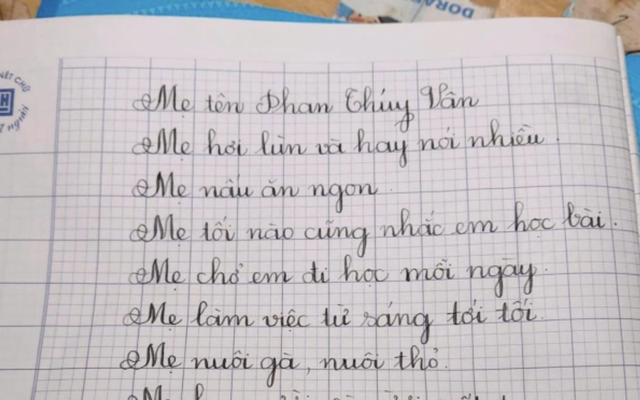 DORA
NÉT CHỮ
NGƯỜI
Mẹ tên Phan Thúy Vân
Mẹ hơi lùn và hay nói nhiều.
Mẹ nấu ăn ngon.
Mẹ tối nào cũng nhắc em học bài.
Mẹ chở em đi học mỗi ngày.
Mẹ làm việc từ sáng tới tối.
Mẹ nuôi gà, nuôi thỏ.
Mẹ